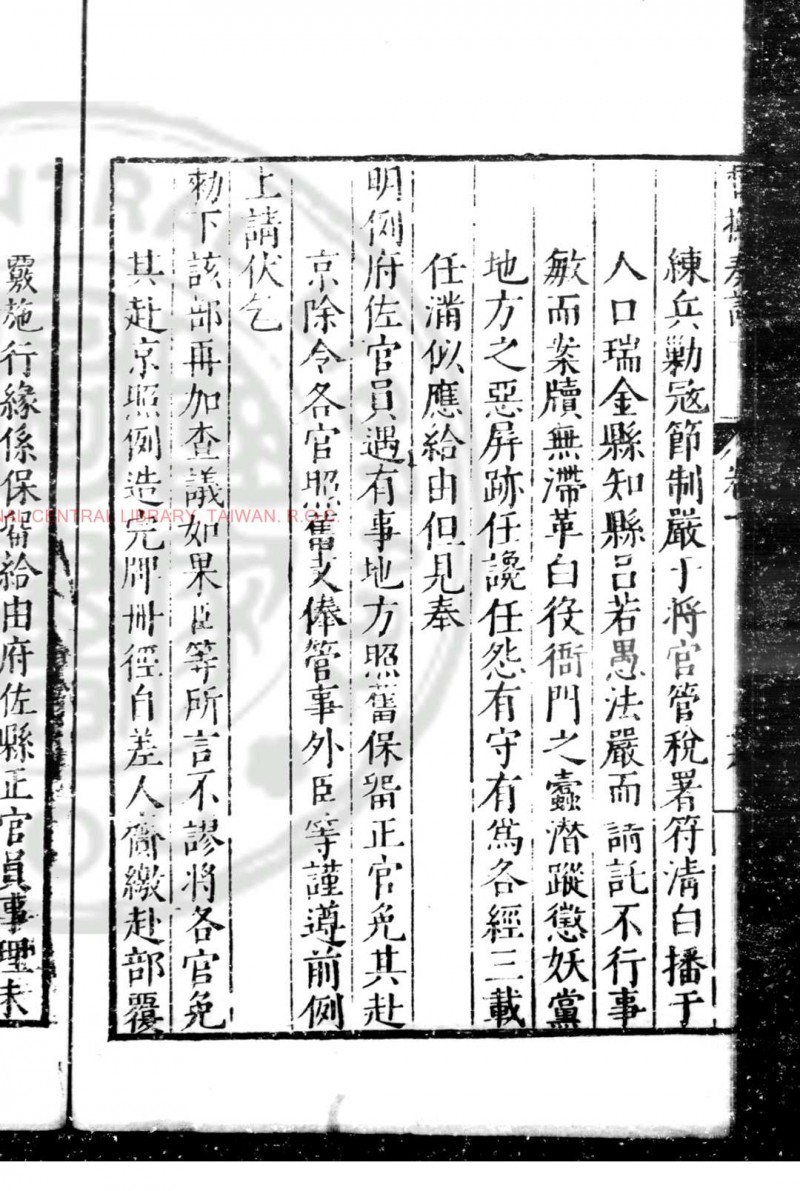 練兵勦宼節制嚴于將官管稅署符清白播于
人口瑞金縣知縣呂若愚法嚴而請託不行事
敏而案牘無滯革白役衙門之蠹潛蹤懲妖黨
地方之惡屏跡任讒任怨有守有為各經三載
任滿似應給由但見奉
明例府佐官員遇有事地方照舊保畱正官免其赴
京除令各官照舊支俸管事外臣等謹遵前例
上請伏乞
勑下該部再加查議如果臣等所言不謬將各官免
其赴京照例造完牌冊徑自差人齎繳赴部覆
覈施行緣係保畱給由府佐縣正官員事理未
NAL CENTRAL LIBRARY, TAIWAN. R.O.C.